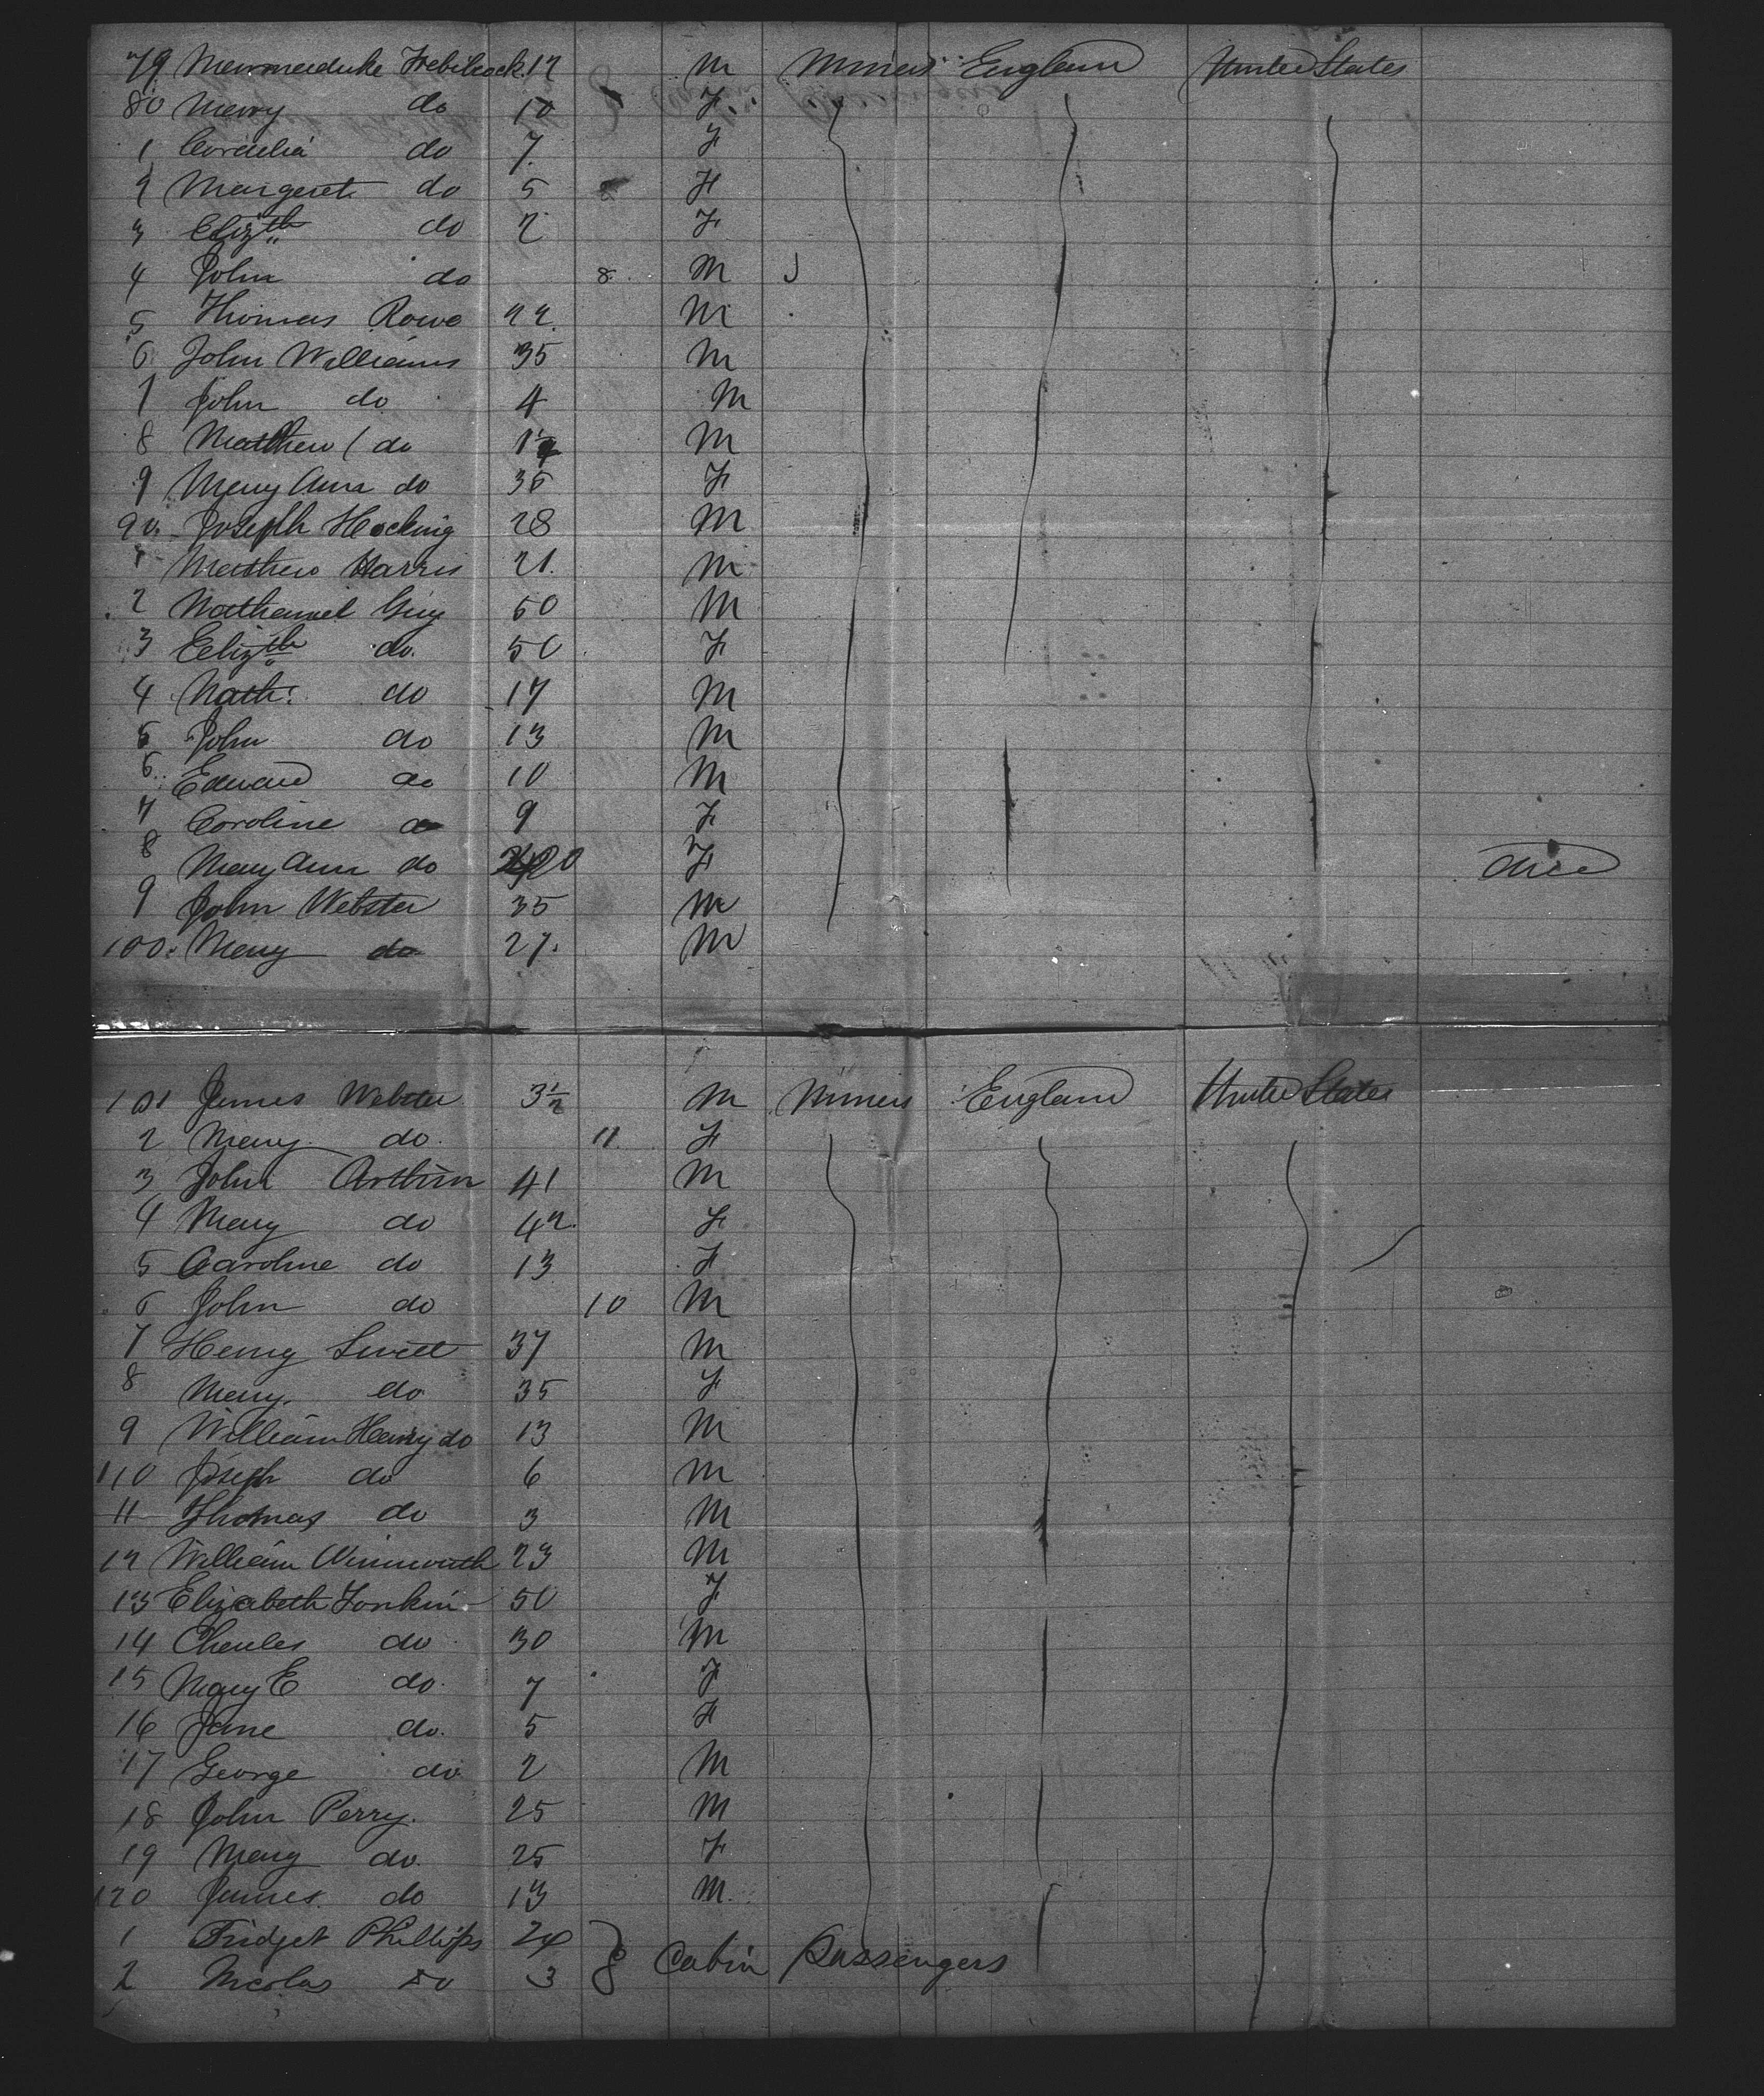 79 Marmaduke Trebilcock 12 M Miners England United States
80 Mary do 10 F
1 Cordelia do 7 F
2 Margeret do 5 F
3 Elizth do 2 F
4 John do 8 M
5 Thomas Rowe 22 M
6 John Williams 35 M
7 John do 4 M
8 Matthew do M
9 Mary Ann do 36 F
90 Joseph Hocking 28 M
1 Mathew Harris 21 M
2 Nathaniel Guy 50 M
3 Elizth do 50 F
4 Nath: do 17 M
5 John do 13 M
6 Edward do 10 M
7 Caroline do 9 F
8 Mary Ann do 20 F died
9 John Webster 35 M
100 Mary do 27 M
101 James Webster 3½ M Miners England United States
2 Mary do 11 F
3 John Arthur 41 M
4 Mary do 42 F
5 Caroline do 13 F
6 John do 10 M
7 Henry Sweet 37 M
8 Mary do 35 F
9 William Henry do 13 M
110 Joseph do 6 M
11 Thomas do 3 M
12 William Winnworth 23 M
13 Elizabeth Tonkin 50 F
14 Charles do 30 M
15 Mary E do 7 F
16 Jane do 5 F
17 George do 2 M
18 John Perry 25 M
19 Mary do 25 F
120 James do 13 M
1 Fridget Phillips 24
2 Nicolas do 3 Cabin Passengers